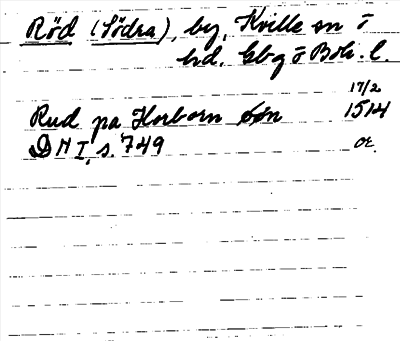 Röd (Södra), by, Kville sn o
hd. Gbg o Boh. l.
17/2
Rud pa Horborn 1514
DN I, s. 749 or.